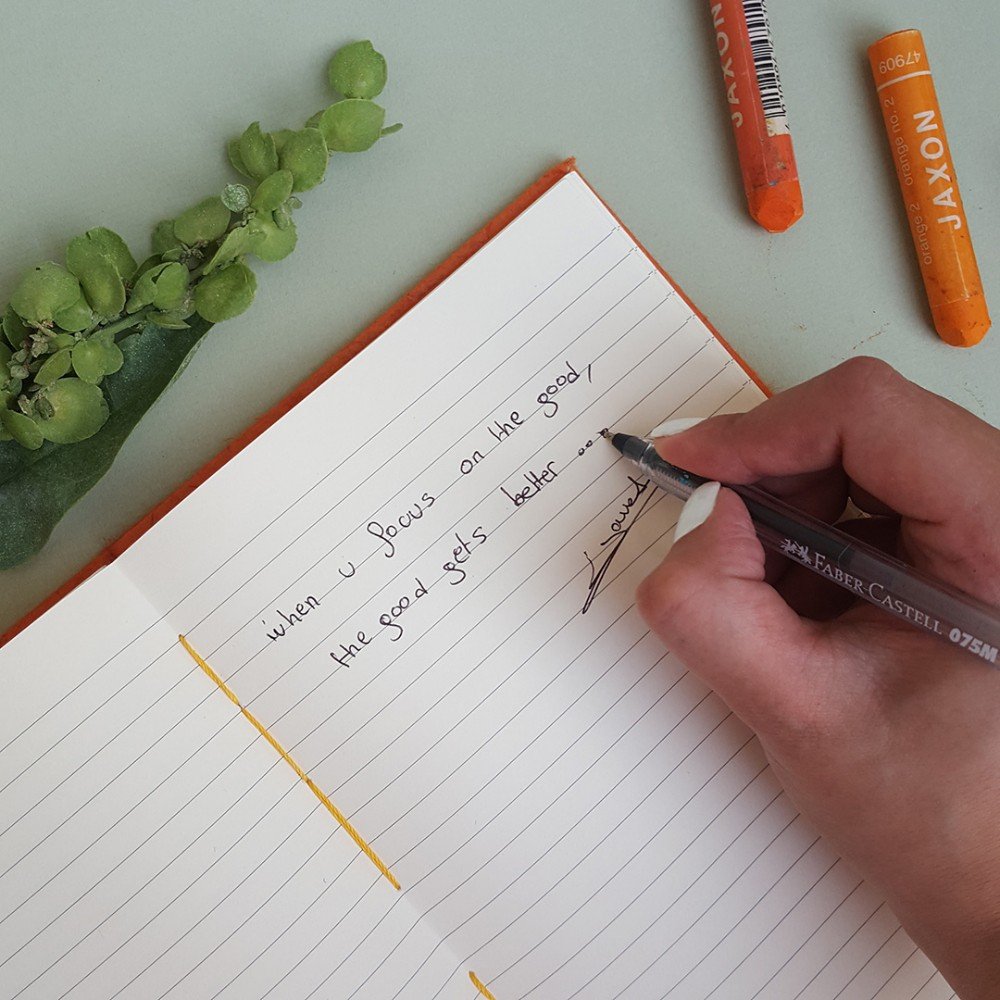 when u focus on the good,
the good gets better ...
JAXON
JAXON
orange 2 orange no. 2
47909
FABER-CASTELL 075M